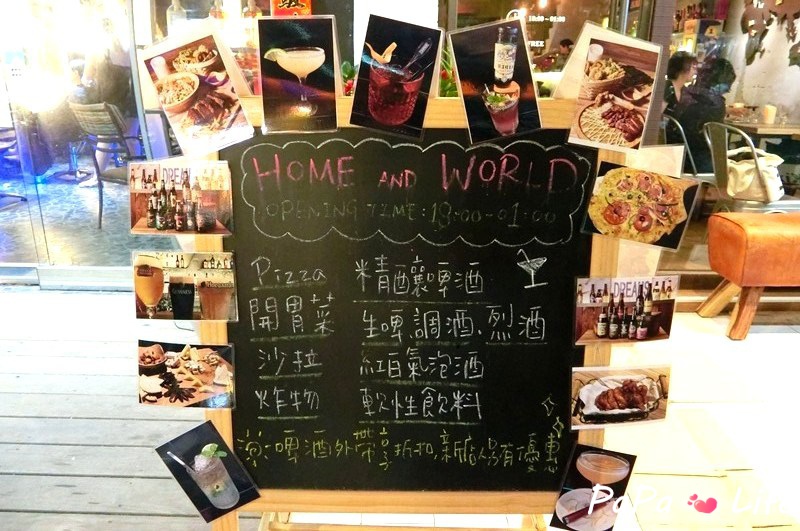 HOME AND WORLD
OPENING TIME: 18:00-01:00
Pizza 精釀啤酒
開胃菜 生啤、調酒、烈酒
沙拉 紅白氣泡酒
炸物 軟性飲料
啤酒外帶享折扣,新店品有優惠
18:00 - 01:00
FREE
DREAMS
DREAMS
PaPa Lin